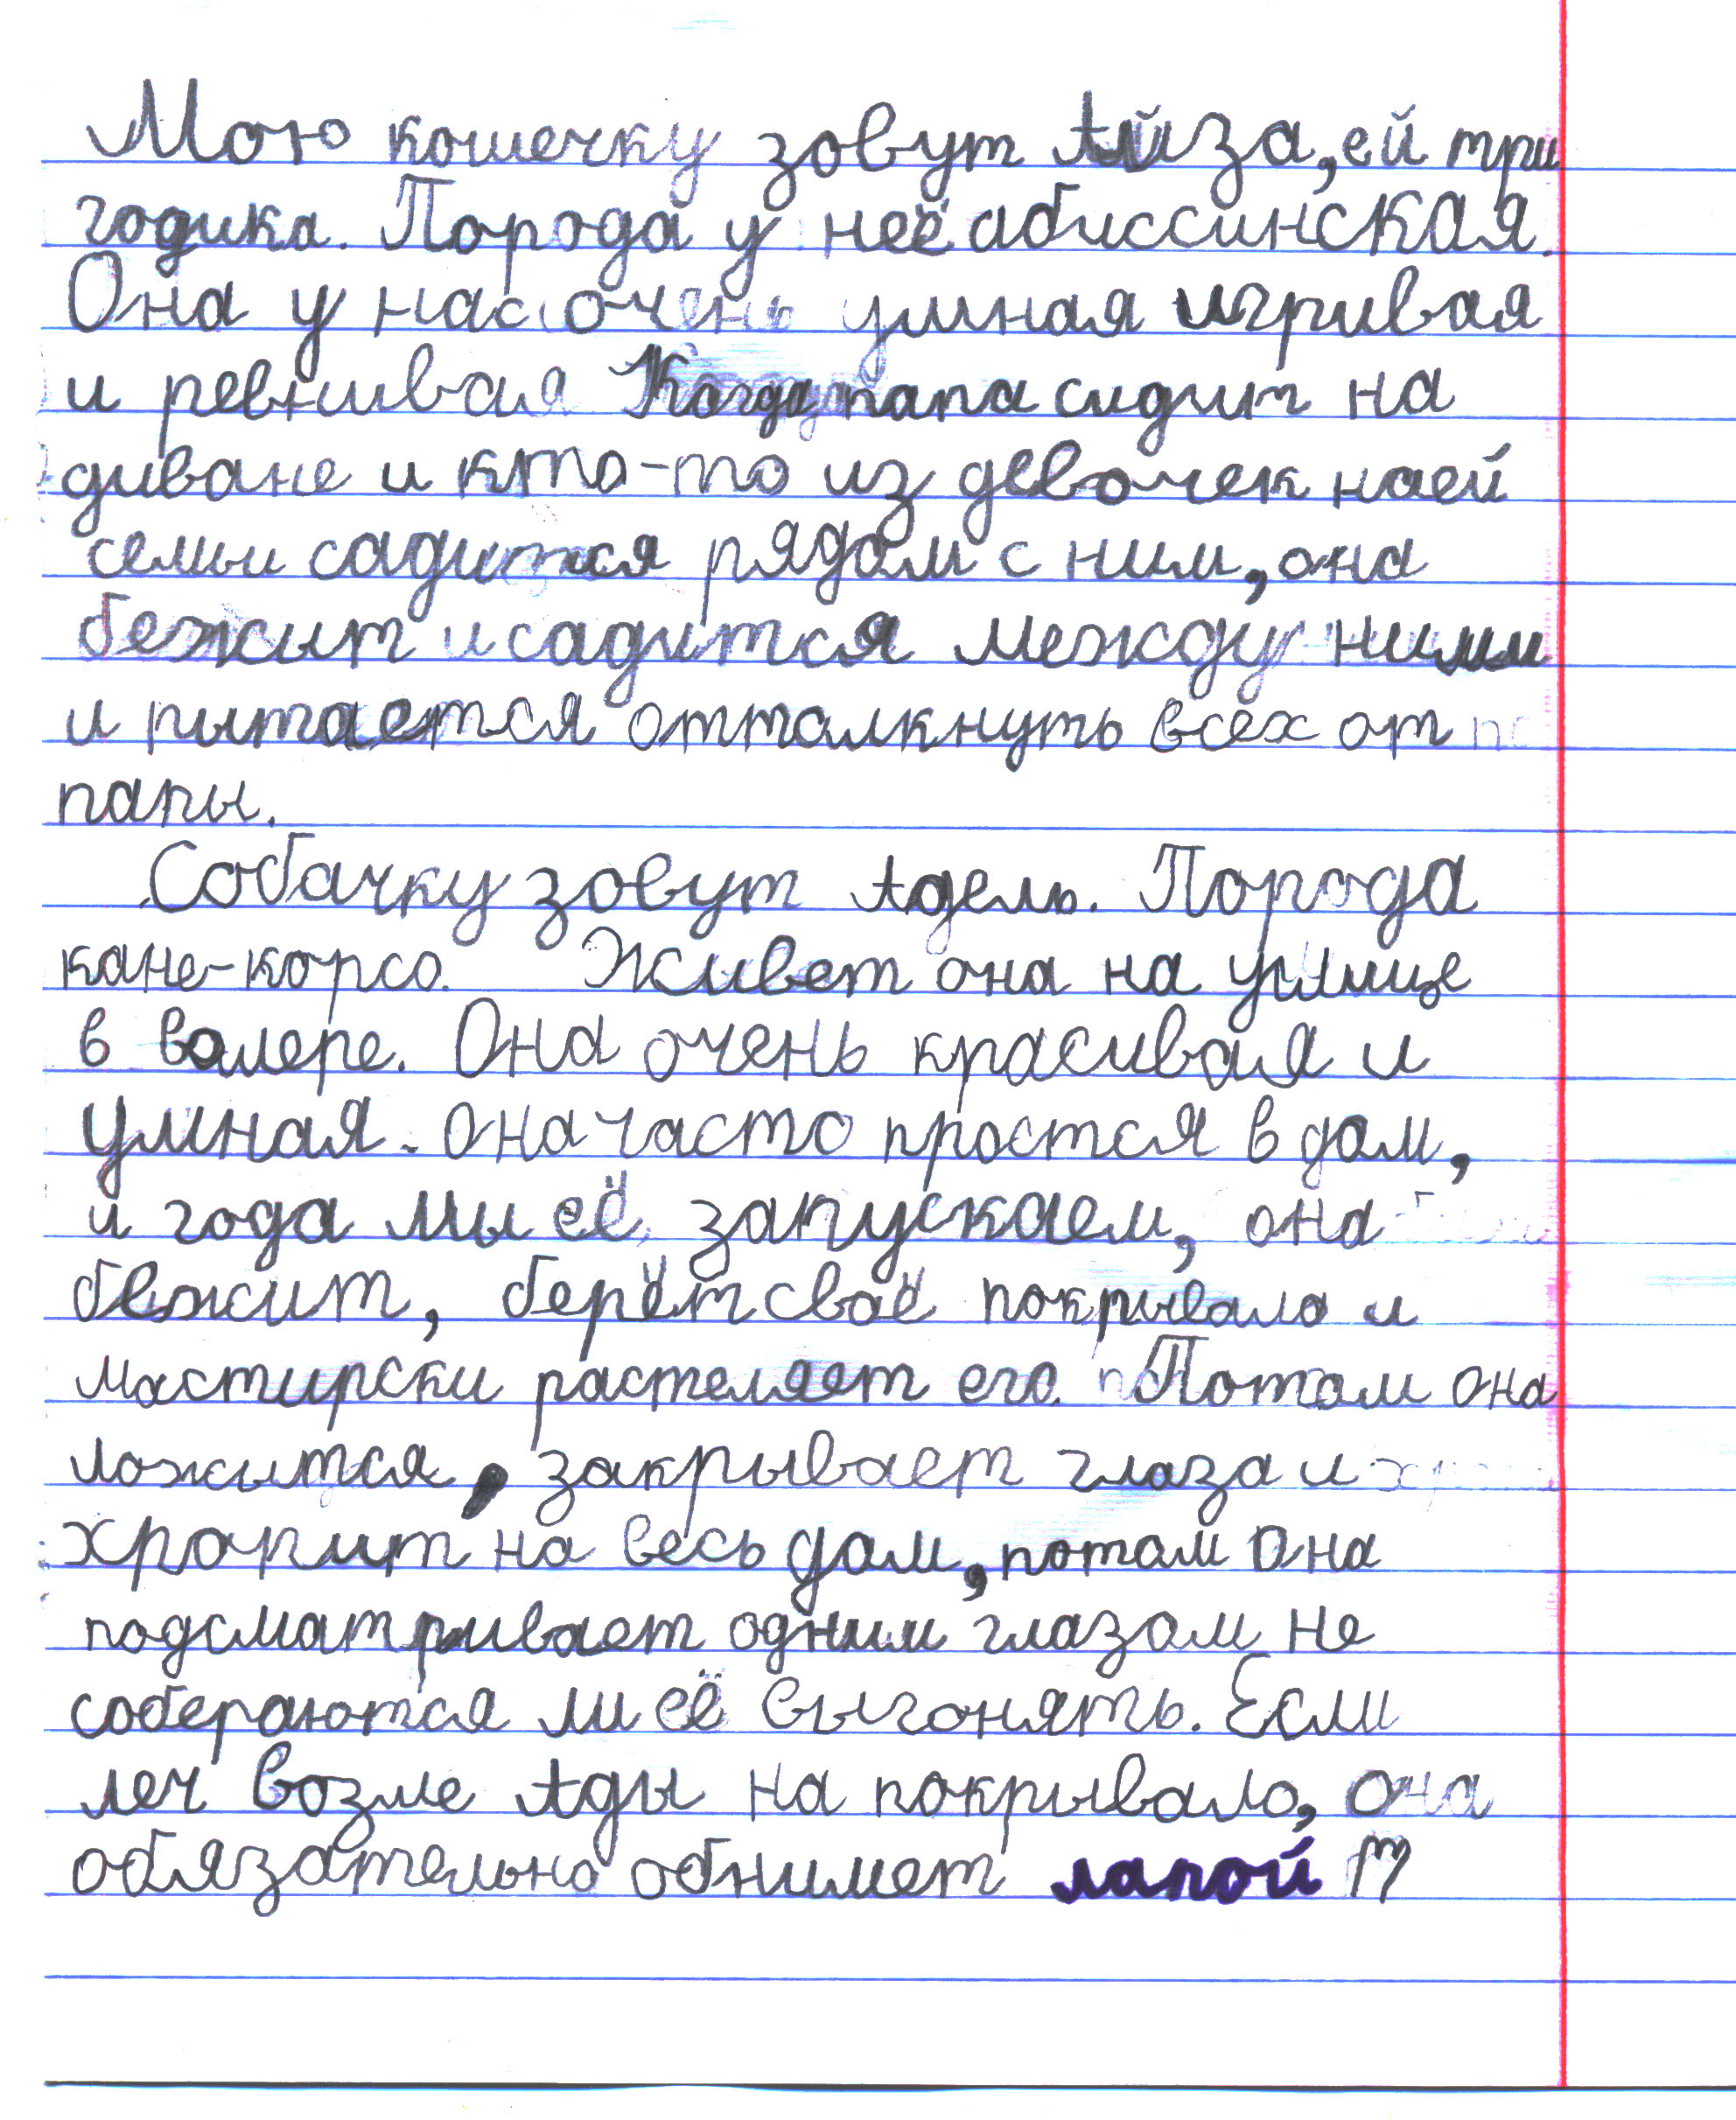 Мою кошечку зовут Айза, ей три
годика. Порода у неё абиссинская.
Она у нас очень умная игривая
и ревнивая Когда папа сидит на
диване и кто-то из девочек наей
семьи садится рядом с ним, она
бежит и садится между ними
и пытается оттолкнуть всех от
папы.
Собачку зовут Адель. Порода
кане-корсо. Живет она на улице
в волере. Она очень красивая и
умная. Она часто простся в дом,
и года мы её запускаем, она
бежит, берёт своё покрывало и
мастирски растеляет его. Потом она
ложытся, закрывает глаза и
храпит на весь дом, потом она
подсматривает одним глазом не
собераются ли её выгонять. Если
леч возме Ады на покрывало, она
обязательно обнимет лапой